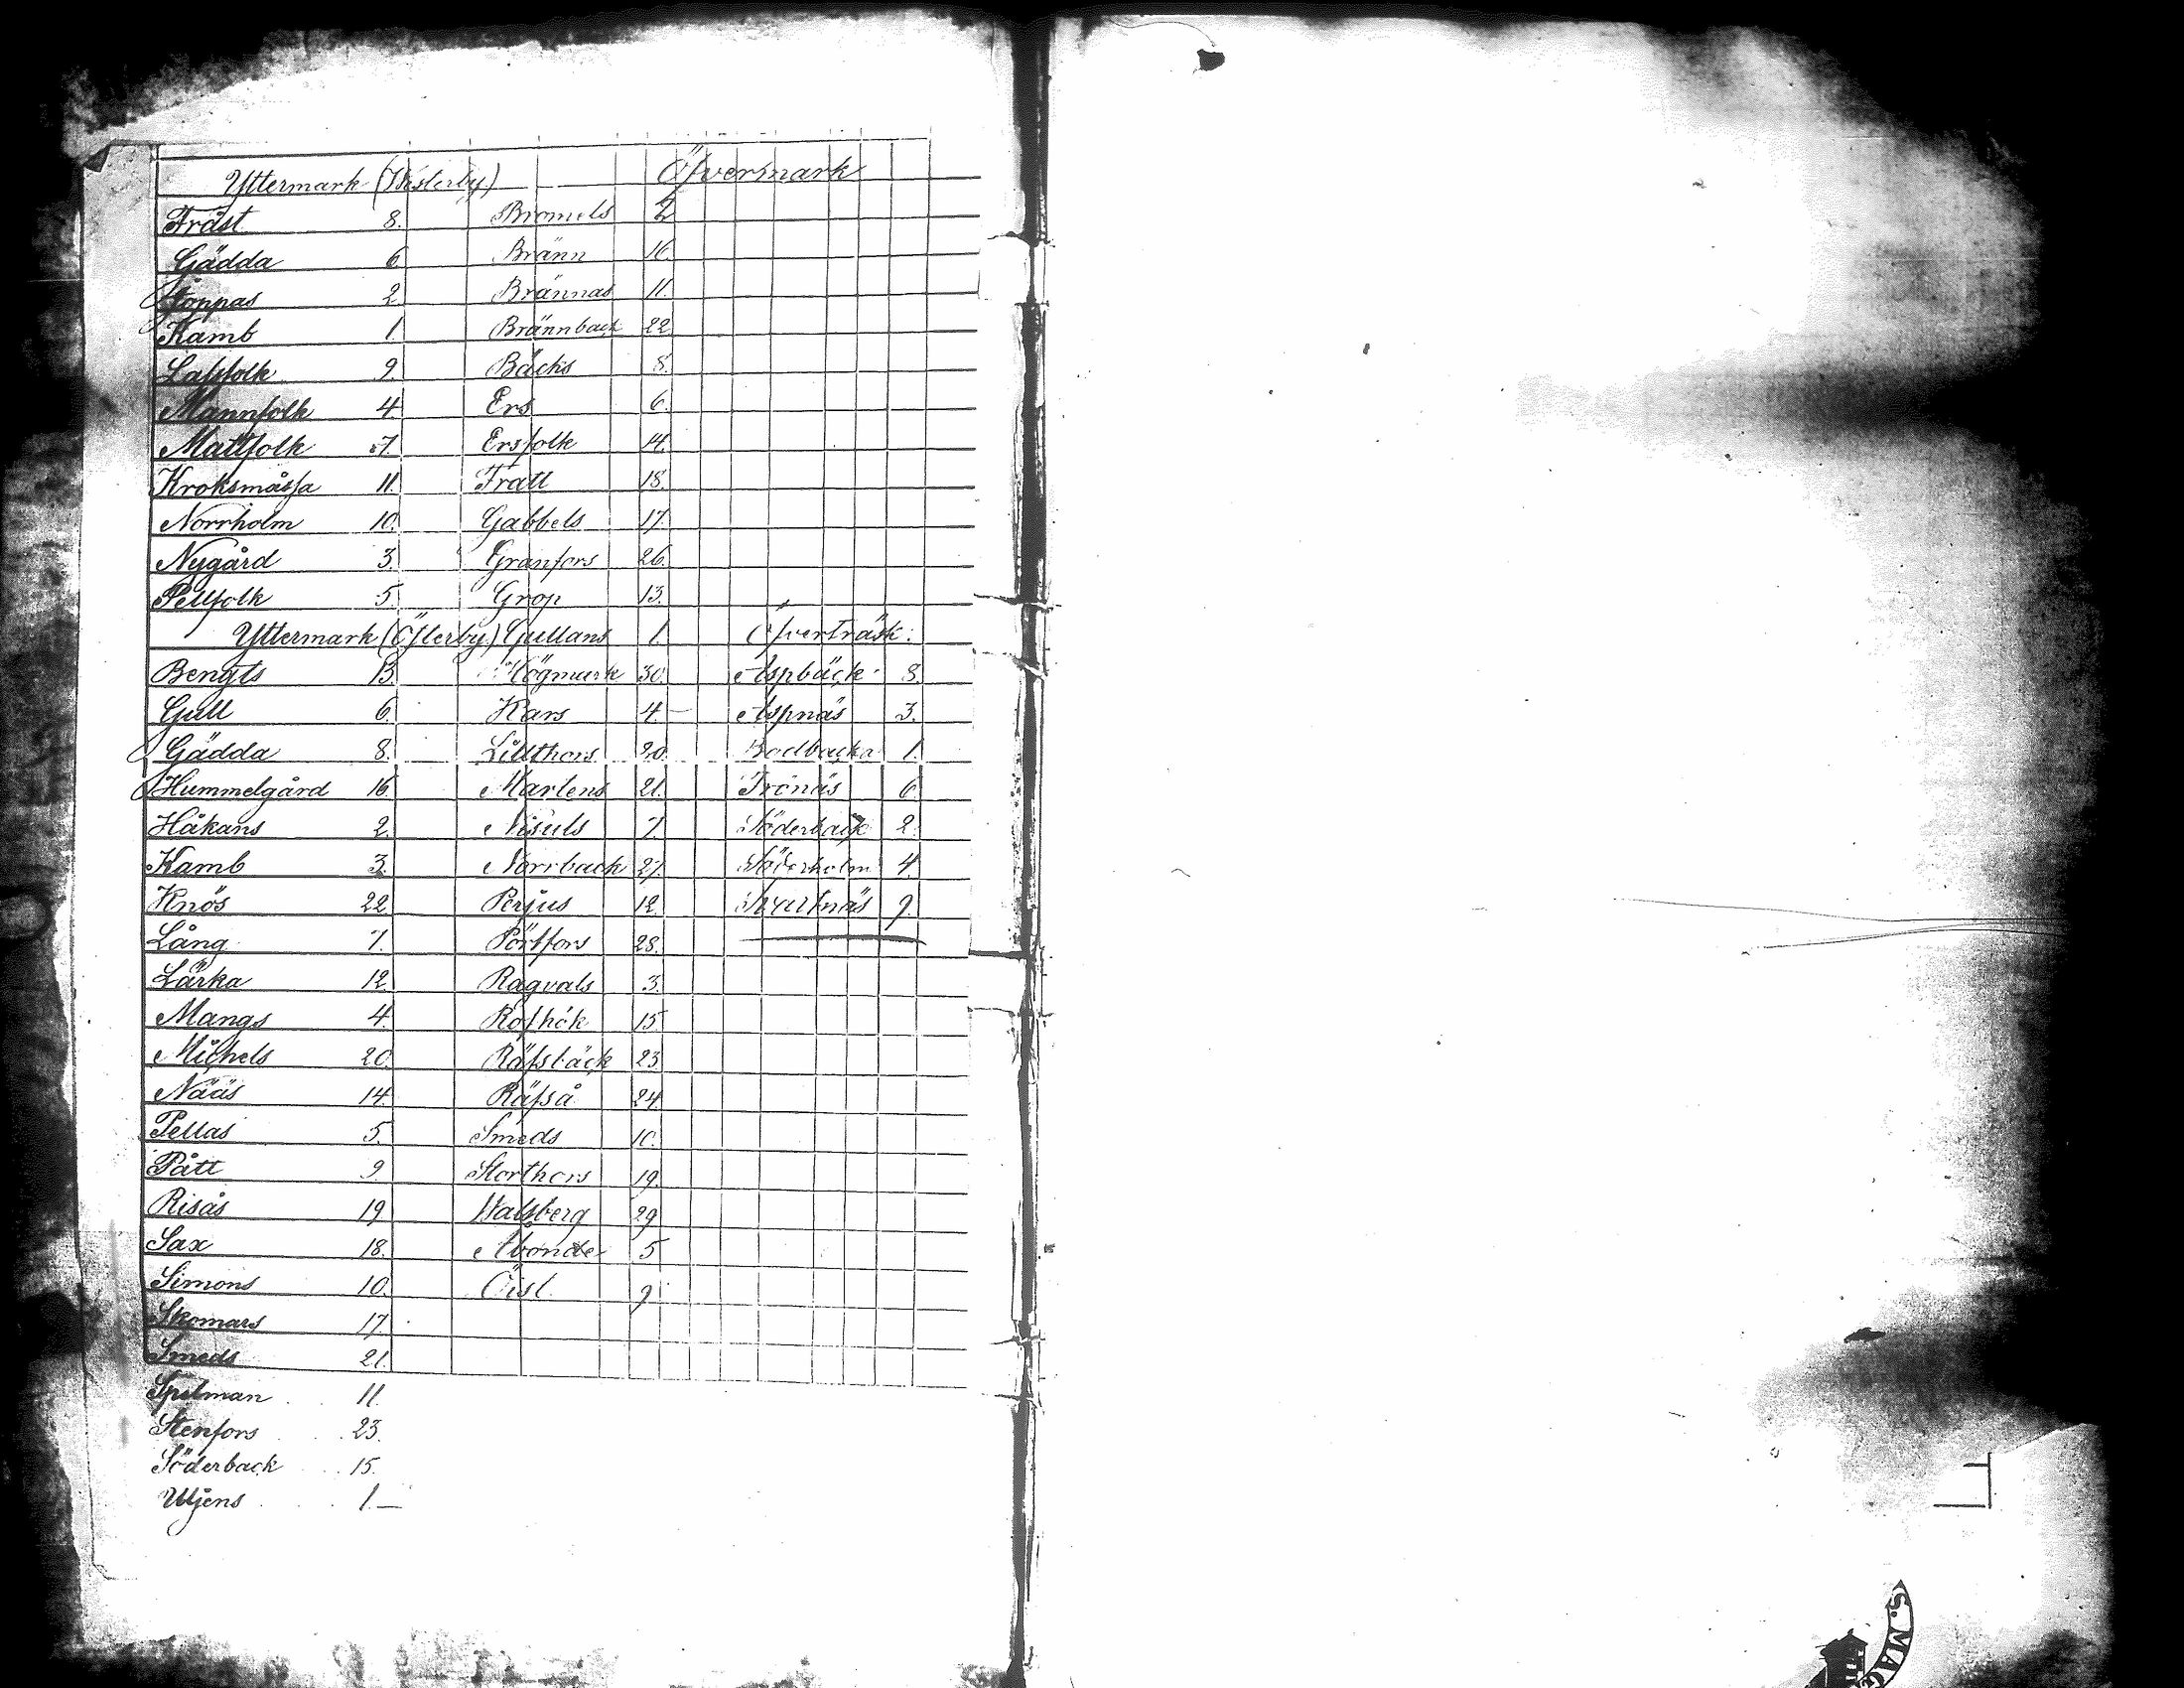 Yttermark (Westerby)
Träst 8.
Gädda 6
Joppas 2
Kamb 1.
Lassfolk 9
Mannfolk 4.
Mattfolk 7.
Kroksmåssa 11.
Norrholm 10.
Nygård 3.
Pellfolk 5.
Yttermark (Österby)
Bengts 13.
Gull 6.
Gädda 8.
Hummelgård 16.
Håkans 2.
Kamb 3.
Knös 22
Lång 7.
Lärka 12
Mangs 4.
Michels 20.
Nääs 14.
Pellas 5.
Pått 9
Risås 19
Sax 18.
Simons 10.
Skomars 17.
Smeds 21.
Spelman 11.
Stenfors 23.
Söderback 15.
Utjens 1.—
Öfvermark
Bromels 2
Bränn 16
Brännas 11.
Brännback 22
Bäcks 8.
Ers 6.
Ersfolk 14.
Fratt 18.
Gabbels 17.
Granfors 26.
Grop 13.
Gullans 1.
Högmark 30.
Kars 4.—
Lillthors 20.
Martens 21.
Nisuls 7
Norrback 27.
Perjus 12
Pörtfors 28.
Ragvals 3.
Rosshök 15
Räfsbäck 23.
Räfså 24.
Smeds 10.
Storthors 19.
Walsberg 29
Åbonde 5
Öist 9
Öfverträsk.
Aspbäck 8.
Aspnäs 3.
Bodbacka 1.
Frönäs 6
Söderback 2.
Söderholm 4.
Svartnäs 9.
S. MAG